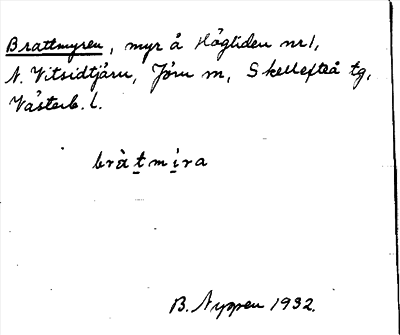 Brattmyren, myr å Högtiden nr 1,
N. Vitsidtjärn, Jörn sn, Skellefteå tg,
Västerb. l.
bràt̲mi̲ra
B. Nyppen 1932.